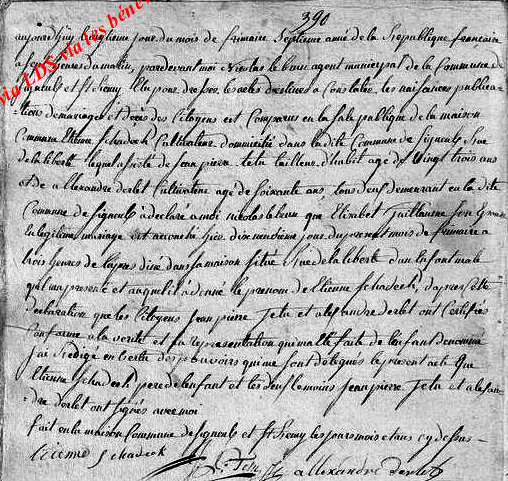 390
via LDS via les béné
aujourd'huy vingtieme jour du mois de frimaire Septieme année de la Republique francaise
a heures du matin, pardevant moi Nicolas agent municipal de la Commune de
Signeuls et St Remy Elu pour dresser les actes destinés à Constater les naissances publica-
tions de mariages et décès des Citoyens est Comparus en la sale publique de la maison
Commune Etienne Schadeck Cultivateur domicilié dans la dite Commune de Signeuls Rue
de la liberte lequel assisté de jean pierre Tetu tailleur d'habit age de Vingt trois ans
et de alexandre derlet Cultivateur agé de soixante ans, tous deux demeurant en la dite
Commune de Signeuls à declaré a moi nicolas que Elisabet Guillaume son Epouse
en legitime mariage est accouché hier dix neuvieme jour du present mois de frimaire a
trois heures de l'apres diné dans sa maison situé Rue de la liberté d'un Enfant male
qu'il m'a presenté et auquel il a donné le prenom de Etienne Schadeck, d'apres cette
declaration que les Citoyens Jean pierre Tetu et alexandre derlet ont Certifiés
Conforme a la verité et la representation qui m'a été faite de l'enfant denommé
j'ai Redigé en Vertu des pouvoirs qui me sont délegués le present acte Que
Etienne Schadeck pere de l'enfant et les deux temoins jean pierre Tetu et alexan-
dre derlet ont signés avec moi
fait en la maison Commune de Signeuls et St Remy les jours mois et ans cy dessus
Etienne Schadeck
Tetu alexandre derlet